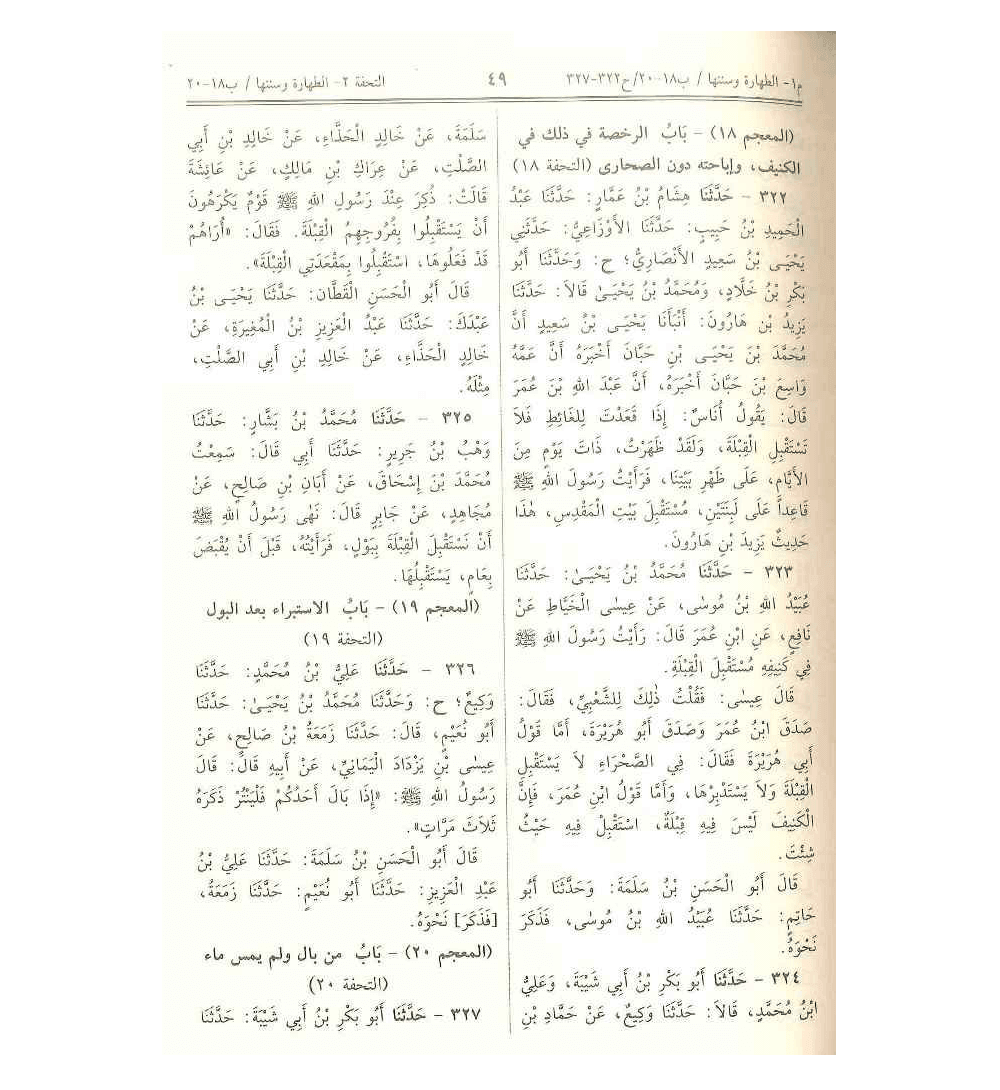 م١- الطهارة وسننها / ب١٨-٢٠/ ح٣٢٢-٣٢٧
٤٩
التحفة ٢- الطهارة وسننها / ب١٨-٢٠
(المعجم ١٨) - بَابُ الرخصة في ذلك في
الكنيف، وإباحته دون الصحارى (التحفة ١٨)
٣٢٢ - حَدَّثَنَا هِشَامُ بْنُ عَمَّارٍ: حَدَّثَنَا عَبْدُ
الْحَمِيدِ بْنُ حَبِيبٍ: حَدَّثَنَا الأَوْزَاعِيُّ: حَدَّثَنِي
يَحْيَى بْنُ سَعِيدٍ الأَنْصَارِيُّ؛ ح: وَحَدَّثَنَا أَبُو
بَكْرِ بْنُ خَلَّادٍ، وَمُحَمَّدُ بْنُ يَحْيَىٰ قَالاَ: حَدَّثَنَا
يَزِيدُ بْن هَارُونَ: أَنْبَأَنَا يَحْيَى بْنُ سَعِيدٍ أَنَّ
مُحَمَّدَ بْنَ يَحْيَى بْنِ حَبَّانَ أَخْبَرَهُ أَنَّ عَمَّهُ
وَاسِعَ بْنَ حَبَّانَ أَخْبَرَهُ، أَنَّ عَبْدَ اللهِ بْنَ عُمَرَ
قَالَ: يَقُولُ أُنَاسٌ: إِذَا قَعَدْتَ لِلْغَائِطِ فَلاَ
تَسْتَقْبِلِ الْقِبْلَةَ، وَلَقَدْ ظَهَرْتُ، ذَاتَ يَوْمٍ مِنَ
الأَيَّامِ، عَلَى ظَهْرِ بَيْتِنَا، فَرَأَيْتُ رَسُولَ اللهِ ﷺ
قَاعِداً عَلَى لَبِنَتَيْنِ، مُسْتَقْبِلَ بَيْتِ الْمَقْدِسِ، هٰذَا
حَدِيثُ يَزِيدَ بْنِ هَارُونَ.
٣٢٣ - حَدَّثَنَا مُحَمَّدُ بْنُ يَحْيَىٰ: حَدَّثَنَا
عُبَيْدُ اللهِ بْنُ مُوسَى، عَنْ عِيسَى الْخَيَّاطِ عَنْ
نَافِعٍ، عَنِ ابْنِ عُمَرَ قَالَ: رَأَيْتُ رَسُولَ اللهِ ﷺ
فِي كَنِيفِهِ مُسْتَقْبِلَ الْقِبْلَةِ.
قَالَ عِيسَى: فَقُلْتُ ذٰلِكَ لِلشَّعْبِيِّ، فَقَالَ:
صَدَقَ ابْنُ عُمَرَ وَصَدَقَ أَبُو هُرَيْرَةَ، أَمَّا قَوْلُ
أَبِي هُرَيْرَةَ فَقَالَ: فِي الصَّحْرَاءِ لاَ يَسْتَقْبِلِ
الْقِبْلَةَ وَلاَ يَسْتَدْبِرْهَا، وَأَمَّا قَوْلُ ابْنِ عُمَرَ، فَإِنَّ
الْكَنِيفَ لَيْسَ فِيهِ قِبْلَةٌ، اسْتَقْبِلْ فِيهِ حَيْثُ
شِئْتَ.
قَالَ أَبُو الْحَسَنِ بْنُ سَلَمَةَ: وَحَدَّثَنَا أَبُو
حَاتِمٍ: حَدَّثَنَا عُبَيْدُ اللهِ بْنُ مُوسَى، فَذَكَرَ
نَحْوَهُ.
٣٢٤ - حَدَّثَنَا أَبُو بَكْرِ بْنُ أَبِي شَيْبَةَ، وَعَلِيُّ
ابْنُ مُحَمَّدٍ، قَالاَ: حَدَّثَنَا وَكِيعٌ، عَنْ حَمَّادِ بْنِ
سَلَمَةَ، عَنْ خَالِدٍ الْحَذَّاءِ، عَنْ خَالِدِ بْنِ أَبِي
الصَّلْتِ، عَنْ عِرَاكِ بْنِ مَالِكٍ، عَنْ عَائِشَةَ
قَالَتْ: ذُكِرَ عِنْدَ رَسُولِ اللهِ ﷺ قَوْمٌ يَكْرَهُونَ
أَنْ يَسْتَقْبِلُوا بِفُرُوجِهِمُ الْقِبْلَةَ. فَقَالَ: «أُرَاهُمْ
قَدْ فَعَلُوهَا، اسْتَقْبِلُوا بِمَقْعَدَتِي الْقِبْلَةَ».
قَالَ أَبُو الْحَسَنِ الْقَطَّان: حَدَّثَنَا يَحْيَى بْنُ
عَبْدَكَ: حَدَّثَنَا عَبْدُ الْعَزِيزِ بْنُ الْمُغِيرَةِ، عَنْ
خَالِدٍ الْحَذَّاءِ، عَنْ خَالِدِ بْنِ أَبِي الصَّلْتِ،
مِثْلَهُ.
٣٢٥ - حَدَّثَنَا مُحَمَّدُ بْنُ بَشَّارٍ: حَدَّثَنَا
وَهْبُ بْنُ جَرِيرٍ: حَدَّثَنَا أَبِي قَالَ: سَمِعْتُ
مُحَمَّدَ بْنَ إِسْحَاقَ، عَنْ أَبَانَ بْنِ صَالِحٍ، عَنْ
مُجَاهِدٍ، عَنْ جَابِرٍ قَالَ: نَهَى رَسُولُ اللهِ ﷺ
أَنْ نَسْتَقْبِلَ الْقِبْلَةَ بِبَوْلٍ، فَرَأَيْتُهُ، قَبْلَ أَنْ يُقْبَضَ
بِعَامٍ، يَسْتَقْبِلُهَا.
(المعجم ١٩) - بَابُ الاستبراء بعد البول
(التحفة ١٩)
٣٢٦ - حَدَّثَنَا عَلِيُّ بْنُ مُحَمَّدٍ: حَدَّثَنَا
وَكِيعٌ؛ ح: وَحَدَّثَنَا مُحَمَّدُ بْنُ يَحْيَىٰ: حَدَّثَنَا
أَبُو نُعَيْمٍ، قَالَ: حَدَّثَنَا زَمَعَةُ بْنُ صَالِحٍ، عَنْ
عِيسَى بْنِ يَزْدَادَ الْيَمَانِيِّ، عَنْ أَبِيهِ قَالَ: قَالَ
رَسُولُ اللهِ ﷺ: «إِذَا بَالَ أَحَدُكُمْ فَلْيَنْتُرْ ذَكَرَهُ
ثَلاَثَ مَرَّاتٍ».
قَالَ أَبُو الْحَسَنِ بْنُ سَلَمَةَ: حَدَّثَنَا عَلِيُّ بْنُ
عَبْدِ الْعَزِيزِ: حَدَّثَنَا أَبُو نُعَيْمٍ: حَدَّثَنَا زَمَعَةُ،
[فَذَكَرَ] نَحْوَهُ.
(المعجم ٢٠) - بَابُ من بال ولم يمس ماء
(التحفة ٢٠)
٣٢٧ - حَدَّثَنَا أَبُو بَكْرِ بْنُ أَبِي شَيْبَةَ: حَدَّثَنَا